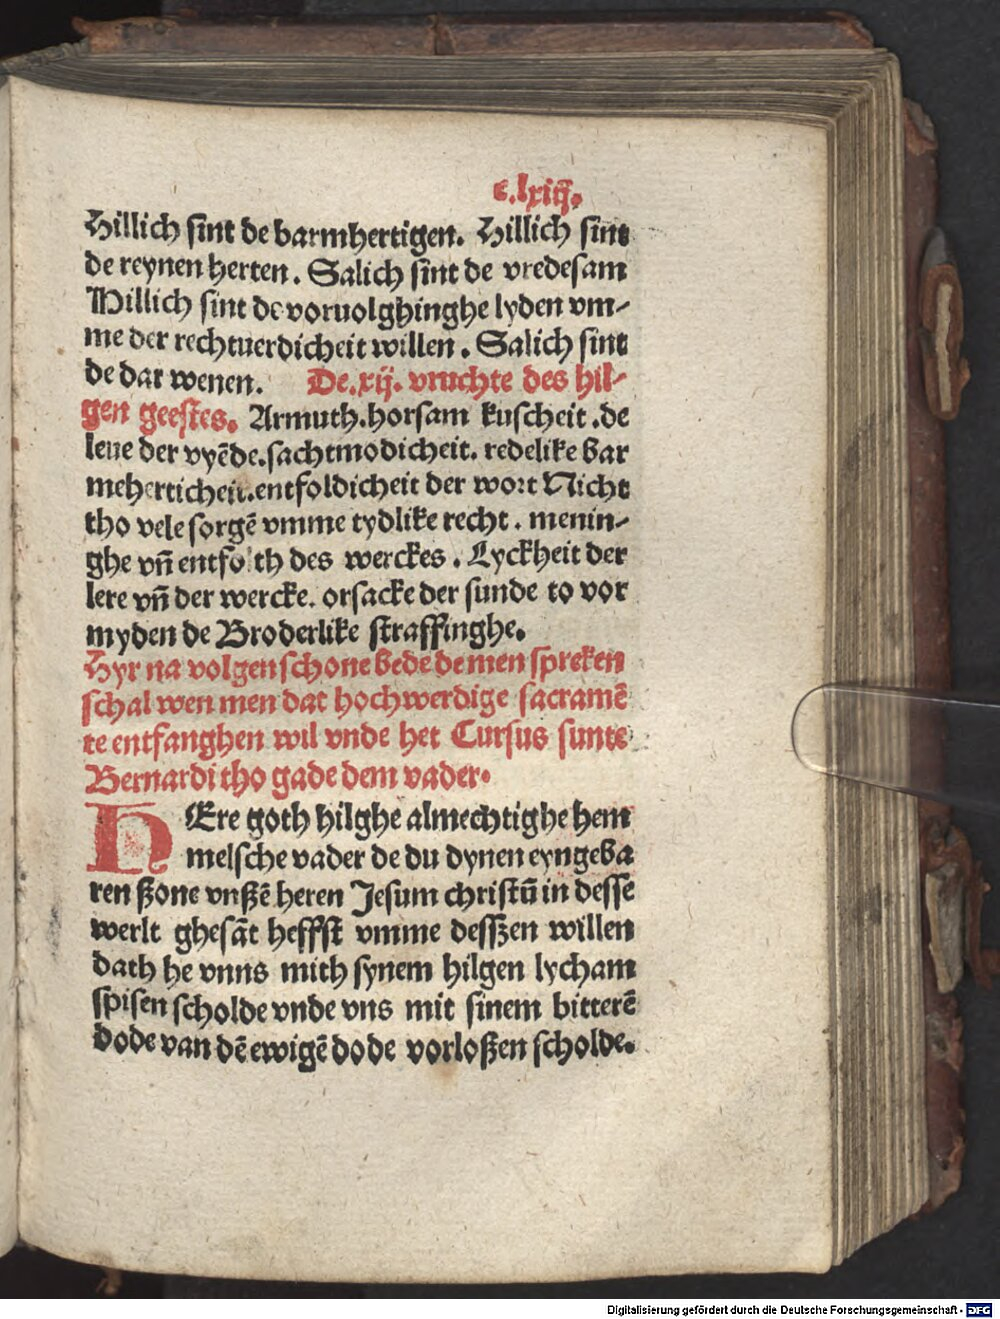 c.lxiij.
Hillich sint de barmhertigen. Hillich sint
de reynen herten. Salich sint de vredesam
Hillich sint de voruolghinghe lyden vm-
me der rechtuerdicheit willen. Salich sint
de dar wenen. De.xij. vruchte des hil-
gen geestes. Armuth.horsam kuscheit.de
leue der vyēde.sachtmodicheit. redelike bar
meherticheit.entfoldicheit der wort Nicht
tho vele sorgē vmme tydlike recht. menin-
ghe vn̄ entfolth des werckes. Lyckheit der
lere vn̄ der wercke. orsacke der sunde to vor
myden de Broderlike straffinghe.
Hyr na volgen schone bede de men spreken
schal wen men dat hochwerdige sacramē
te entfanghen wil vnde het Cursus sunte
Bernardi tho gade dem vader.
HEre goth hilghe almechtighe hem
melsche vader de du dynen eyngeba
ren ßone vnßē heren Jesum christū in desse
werlt ghesāt heffst vmme desszen willen
dath he vnns mith synem hilgen lycham
spisen scholde vnde vns mit sinem bitterē
dode van dē ewigē dode vorloßen scholde.
Digitalisierung gefördert durch die Deutsche Forschungsgemeinschaft - DFG